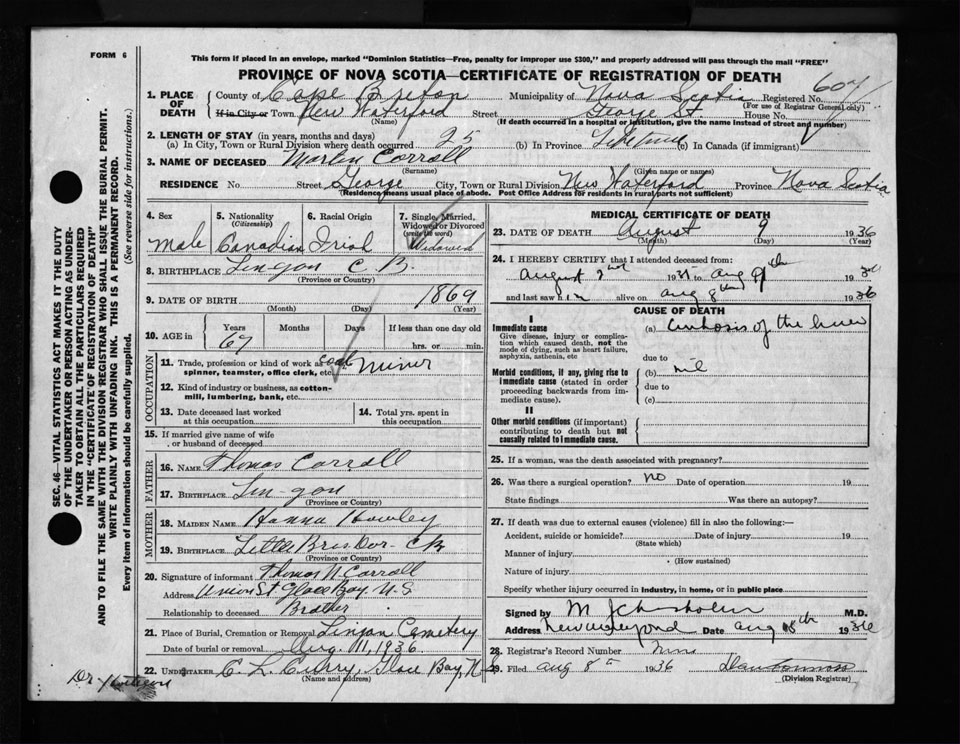 FORM 6
This form if placed in an envelope, marked "Dominion Statistics—Free, penalty for improper use $300," and properly addressed will pass through the mail "FREE"
PROVINCE OF NOVA SCOTIA—CERTIFICATE OF REGISTRATION OF DEATH
SEC. 46—VITAL STATISTICS ACT MAKES IT THE DUTY
OF THE UNDERTAKER OR PERSON ACTING AS UNDER-
TAKER TO OBTAIN ALL THE PARTICULARS REQUIRED
IN THE "CERTIFICATE OF REGISTRATION OF DEATH"
AND TO FILE THE SAME WITH THE DIVISION REGISTRAR WHO SHALL ISSUE THE BURIAL PERMIT.
WRITE PLAINLY WITH UNFADING INK. THIS IS A PERMANENT RECORD.
Every item of information should be carefully supplied. (See reverse side for instructions.)
1. PLACE OF DEATH
County of Cape Breton Municipality of Nova Scotia Registered No. 607
(For use of Registrar General only)
If in City or Town New Waterford Street George St. House No.
(Name) (If death occurred in a hospital or institution, give the name instead of street and number)
2. LENGTH OF STAY (in years, months and days)
(a) In City, Town or Rural Division where death occurred 25 (b) In Province Lifetime (c) In Canada (if immigrant)
3. NAME OF DECEASED Martin Carroll
(Surname) (Given name or names)
RESIDENCE No. Street George City, Town or Rural Division New Waterford Province Nova Scotia
(Residence means usual place of abode. Post Office Address for residents in rural parts not sufficient)
4. Sex Male
5. Nationality (Citizenship) Canadian
6. Racial Origin Irish
7. Single, Married, Widowed or Divorced (write the word) Widowed
8. BIRTHPLACE Lin-gon C. B.
(Province or Country)
9. DATE OF BIRTH 1869
(Month) (Day) (Year)
10. AGE in Years 67 Months Days If less than one day old
hrs. or min.
OCCUPATION
11. Trade, profession or kind of work as spinner, teamster, office clerk, etc. coal miner
12. Kind of industry or business, as cotton-mill, lumbering, bank, etc.
13. Date deceased last worked at this occupation
14. Total yrs. spent in this occupation
15. If married give name of wife or husband of deceased
FATHER
16. NAME Thomas Carroll
17. BIRTHPLACE Lin-gon
(Province or Country)
MOTHER
18. MAIDEN NAME Hanna Howley
19. BIRTHPLACE Little Bras Dor- CB
(Province or Country)
20. Signature of informant Thomas N. Carroll
Address Union St Glace Bay N.S
Relationship to deceased Brother
21. Place of Burial, Cremation or Removal Linjan Cemetery
Date of burial or removal Aug. 11, 1936
22. UNDERTAKER C. L. Curry, Glace Bay, N
(Name and address)
MEDICAL CERTIFICATE OF DEATH
23. DATE OF DEATH August 9 1936
(Month) (Day) (Year)
24. I HEREBY CERTIFY that I attended deceased from:
August 2nd 1935 to Aug 9th 193
and last saw him alive on Aug 8th 1936
CAUSE OF DEATH
I
Immediate cause
Give disease, injury or complication which caused death, not the mode of dying, such as heart failure, asphyxia, asthenia, etc
(a) Cirrhosis of the liver
due to
Morbid conditions, if any, giving rise to immediate cause (stated in order proceeding backwards from immediate cause).
(b) nil
due to
(c)
II
Other morbid conditions (if important) contributing to death but not causally related to immediate cause.
25. If a woman, was the death associated with pregnancy?
26. Was there a surgical operation? no Date of operation 19
State findings Was there an autopsy?
27. If death was due to external causes (violence) fill in also the following:—
Accident, suicide or homicide? Date of injury 19
(State which)
Manner of injury
(How sustained)
Nature of injury
Specify whether injury occurred in industry, in home, or in public place
Signed by M. J. Chisholm M.D.
Address Date Aug 1936
28. Registrar's Record Number
29. Filed Aug 8th 1936
(Division Registrar)